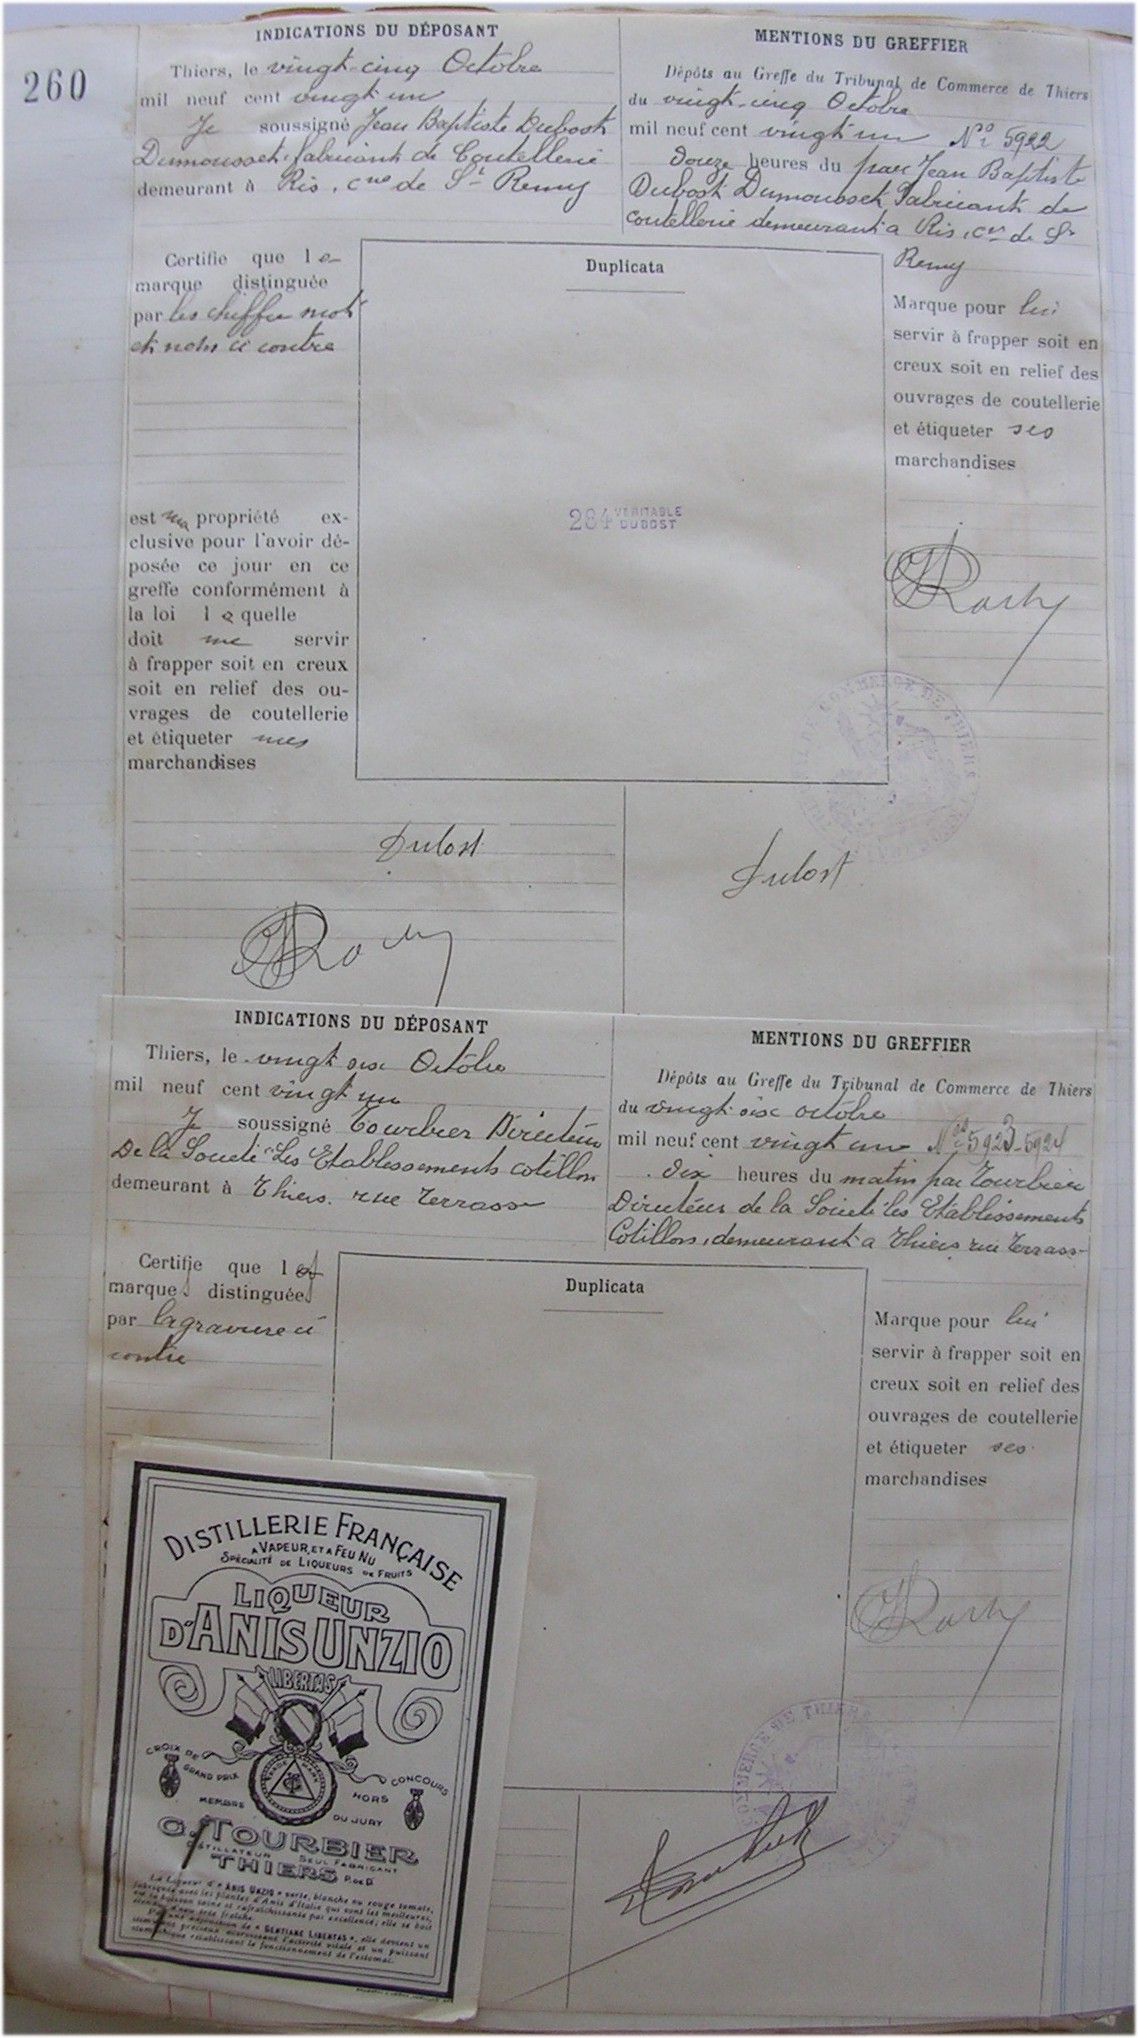 260
INDICATIONS DU DÉPOSANT
Thiers, le vingt-cinq Octobre
mil neuf cent vingt un
Je soussigné Jean Baptiste Dubost
Dumousset, fabricant de Coutellerie
demeurant à Ris, cne de St Remy
MENTIONS DU GREFFIER
Dépôts au Greffe du Tribunal de Commerce de Thiers
du vingt-cinq Octobre
mil neuf cent vingt un No 5922
douze heures du par Jean Baptiste
Dubost Dumousset Fabricant de
coutellerie demeurant a Ris, cne de St
Remy
Certifie que la
marque distinguée
par les chiffre mot
et nom ci contre
est ma propriété ex-
clusive pour l'avoir dé-
posée ce jour en ce
greffe conformément à
la loi laquelle
doit me servir
à frapper soit en creux
soit en relief des ou-
vrages de coutellerie
et étiqueter mes
marchandises
Duplicata
284 VÉRITABLE
DUBOST
Marque pour lui
servir à frapper soit en
creux soit en relief des
ouvrages de coutellerie
et étiqueter ses
marchandises
COMMERCE DE THIERS
Dubost
Dubost
INDICATIONS DU DÉPOSANT
Thiers, le vingt six Octobre
mil neuf cent vingt un
Je soussigné Tourbier Directeur
De la Société Les Etablissements Cotillon
demeurant à Thiers, rue Terrasse
MENTIONS DU GREFFIER
Dépôts au Greffe du Tribunal de Commerce de Thiers
du vingt six octobre
mil neuf cent vingt un Nos 5923-5924
dix heures du matin par Tourbier
Directeur de la Société les Etablissements
Cotillon, demeurant a Thiers rue Terrasse
Certifie que l
marque distinguée
par la gravure ci
contre
Duplicata
Marque pour lui
servir à frapper soit en
creux soit en relief des
ouvrages de coutellerie
et étiqueter ses
marchandises
COMMERCE DE THIERS
DISTILLERIE FRANÇAISE
A VAPEUR ET A FEU NU
SPÉCIALITÉ DE LIQUEURS DE FRUITS
LIQUEUR
D'ANIS UNZIO
LIBERTAS
CROIX DE GRAND PRIX
CONCOURS HORS
MEMBRE DU JURY
G. TOURBIER
DISTILLATEUR SEUL FABRICANT
THIERS P. DE D.
La Liqueur d'« ANIS UNZIO » verte, blanche ou rouge tomate,
fabriquée avec les plantes d'Anis d'Italie qui sont les meilleures,
est la boisson saine et rafraîchissante par excellence; elle se boit
étendue d'eau très fraîche.
Par une adjonction de « GENTIANE LIBERTAS », elle devient un
stimulant précieux nourrissant l'activité vitale et un puissant
stomachique rétablissant le fonctionnement de l'estomac.